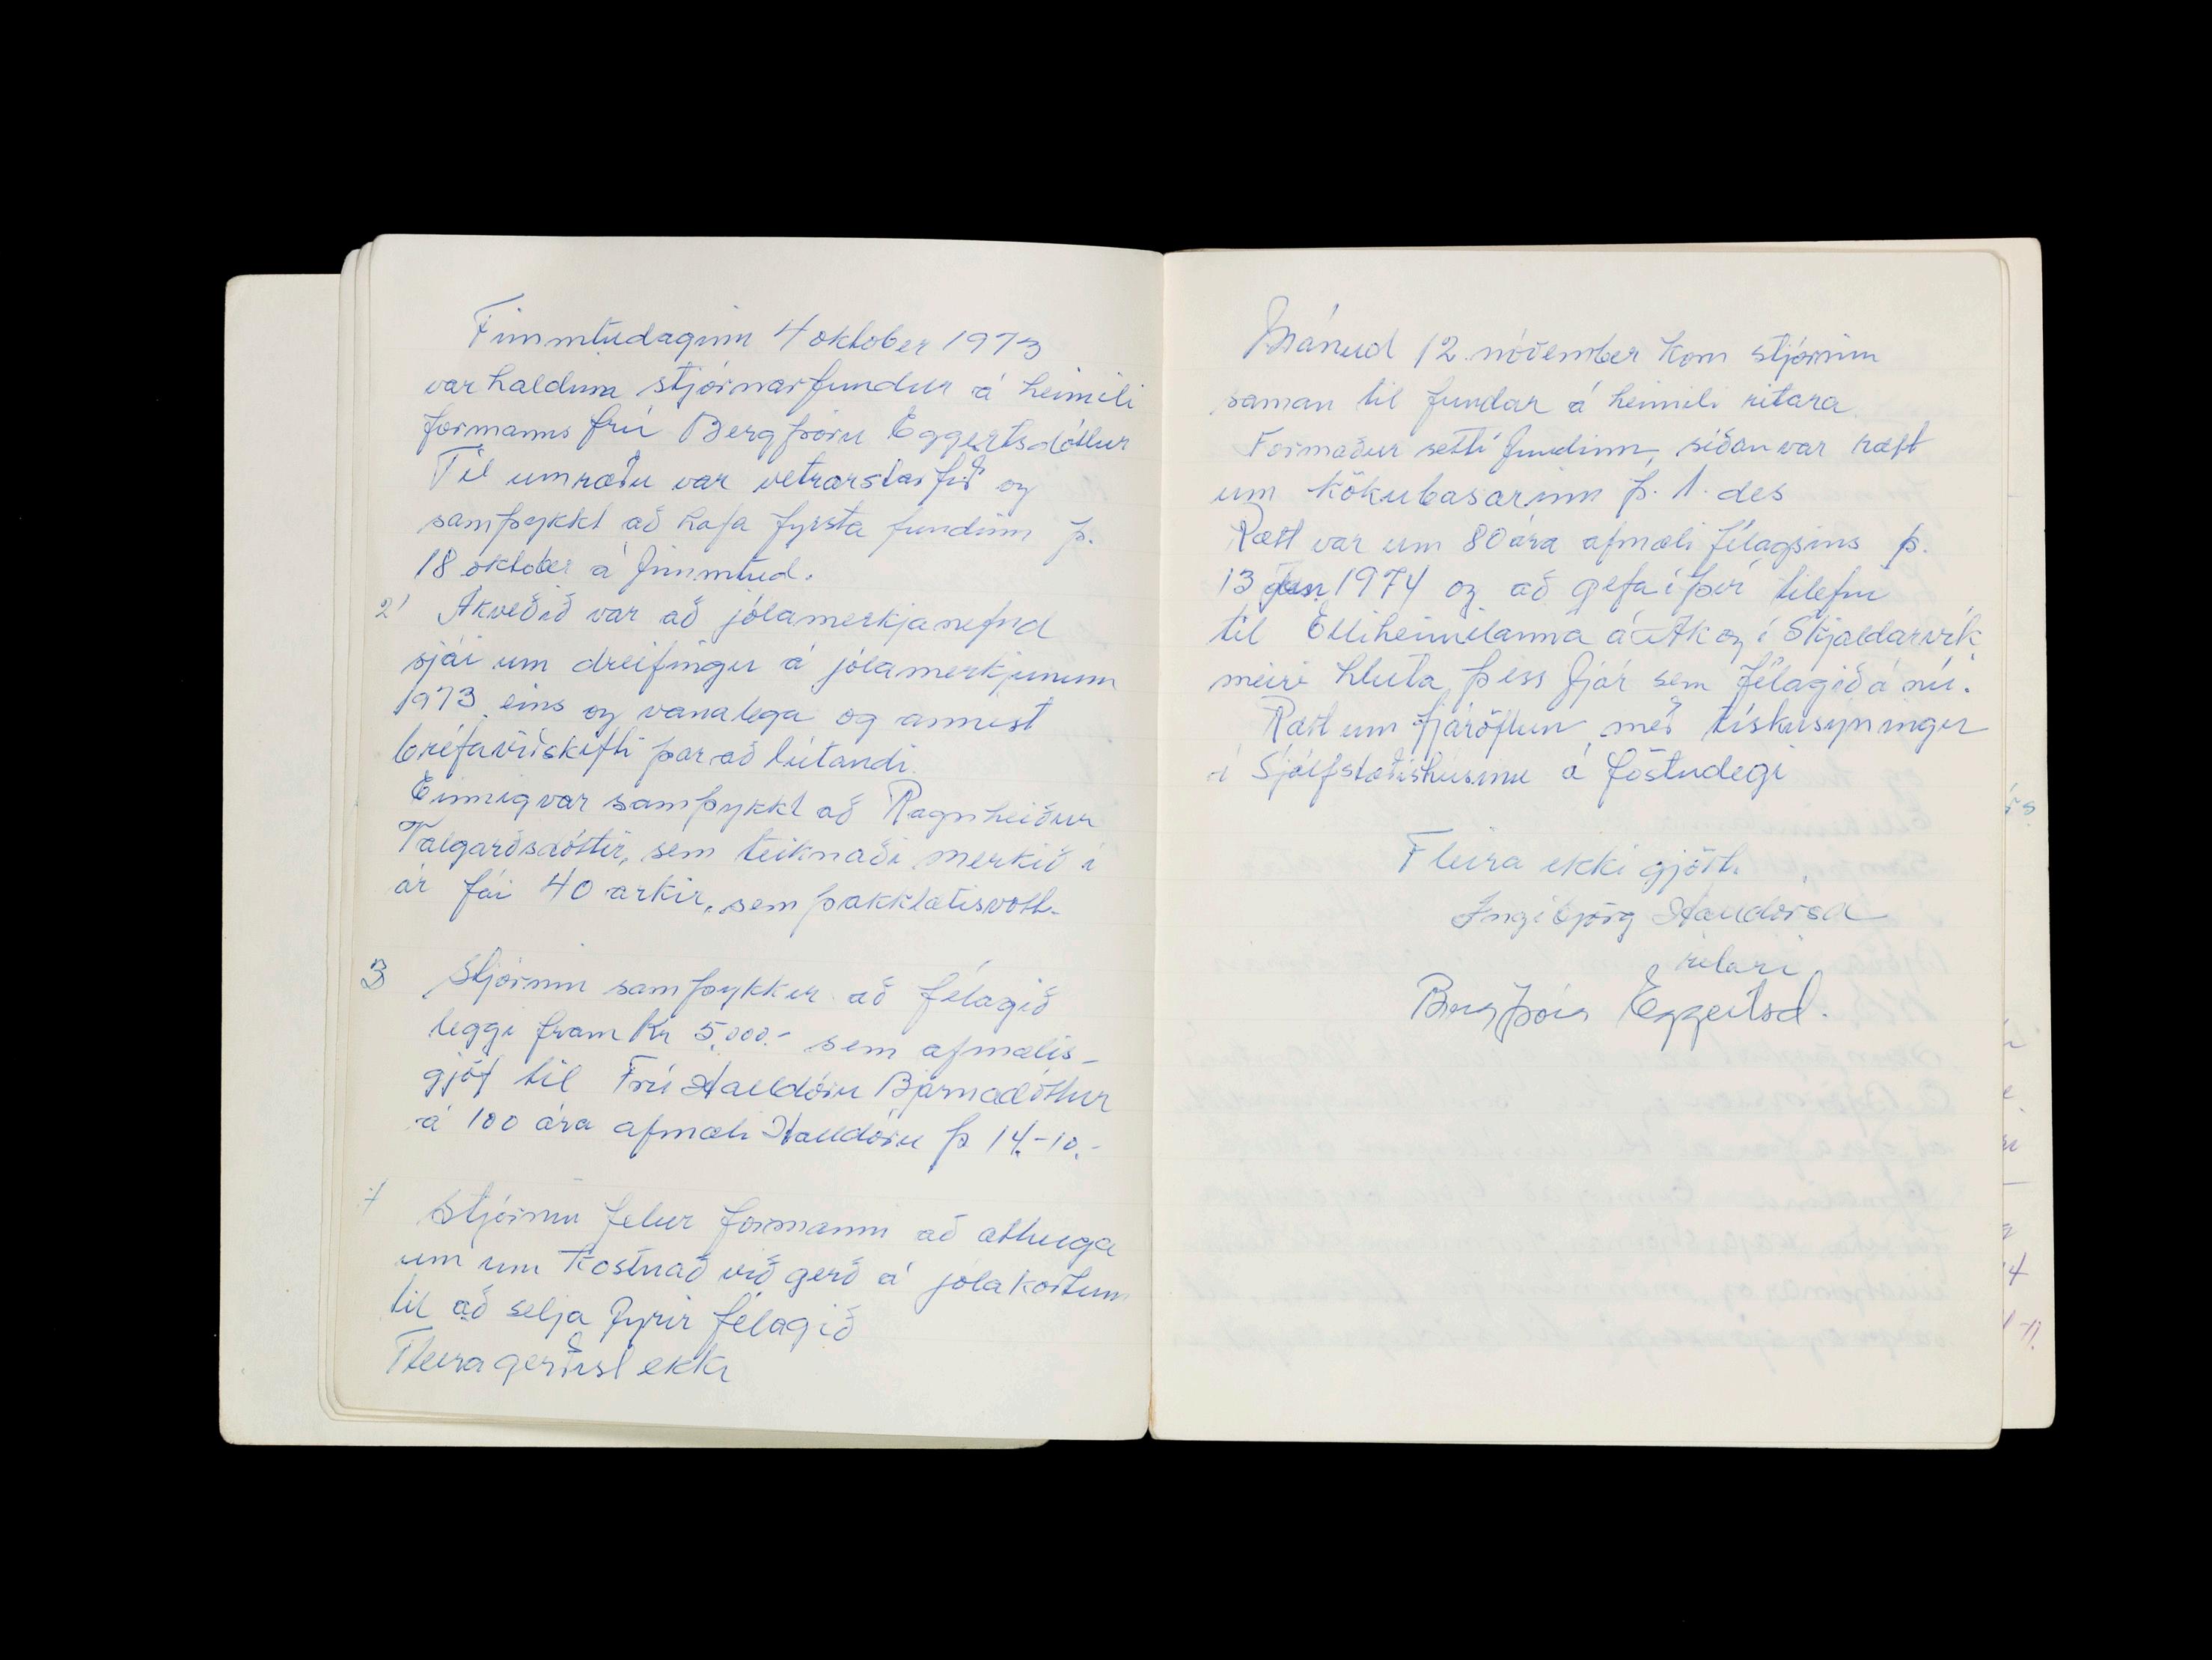 Fimmtudaginn 4 oktober 1973
var haldinn stjórnarfundur á heimili
formanns frú Bergþóru Eggertsdóttur
Til umræðu var vetrarstarfið og
samþykkt að hafa fyrsta fundinn þ.
18 oktober á fimmtud.
2) Ákveðið var að jólamerkjanefnd
sjái um dreifingu á jólamerkjunum
1973 eins og vanalega og annist
bréfaviðskifti þar að lútandi.
Einnig var samþykkt að Ragnheiður
Valgarðsdóttir, sem teiknaði merkið í
ár fái 40 arkir, sem þakklætisvott.
3 Stjórnin samþykkir að félagið
leggi fram Kr 5.000.- sem afmælis-
gjöf til Frú Halldóru Bjarnadóttur
á 100 ára afmæli Halldóru þ 14.-10.-
4 Stjórnin felur formanni að athuga
um um kostnað við gerð á jólakortum
til að selja fyrir félagið
Fleira gerðist ekki
Mánud 12. nóvember kom stjórnin
saman til fundar á heimili ritara.
Formaður setti fundinn, síðan var rætt
um kökubasarinn þ. 1. des
Rætt var um 80 ára afmæli félagsins þ.
13 1974 og að gefa í því tilefni
til Elliheimilanna á Ak og í Skjaldarvík
meiri hluta þess fjár sem félagið á nú.
Rætt um fjáröflun með tískusýningu
í Sjálfstæðishúsinu á föstudegi
Fleira ekki gjört.
Ingibjörg Halldórsd
ritari
Bergþóra Eggertsd.